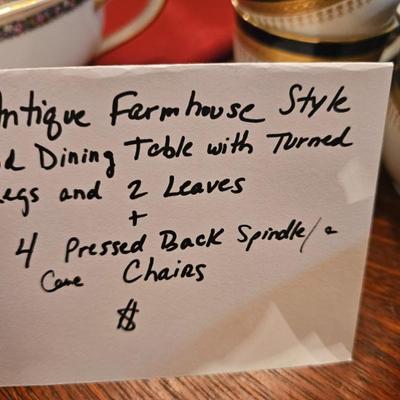 Antique Farmhouse Style
Dining Table with Turned
Legs and 2 Leaves
+
4 Pressed Back Spindle/
Cane Chairs
$